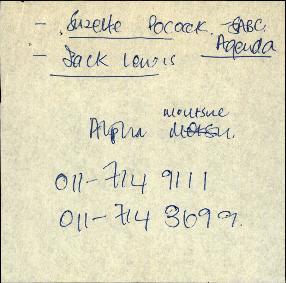 - Suzette Pocock. SABC.
Agenda
- Jack Lewis
Alpha
011-714 9111
011-714 3699.